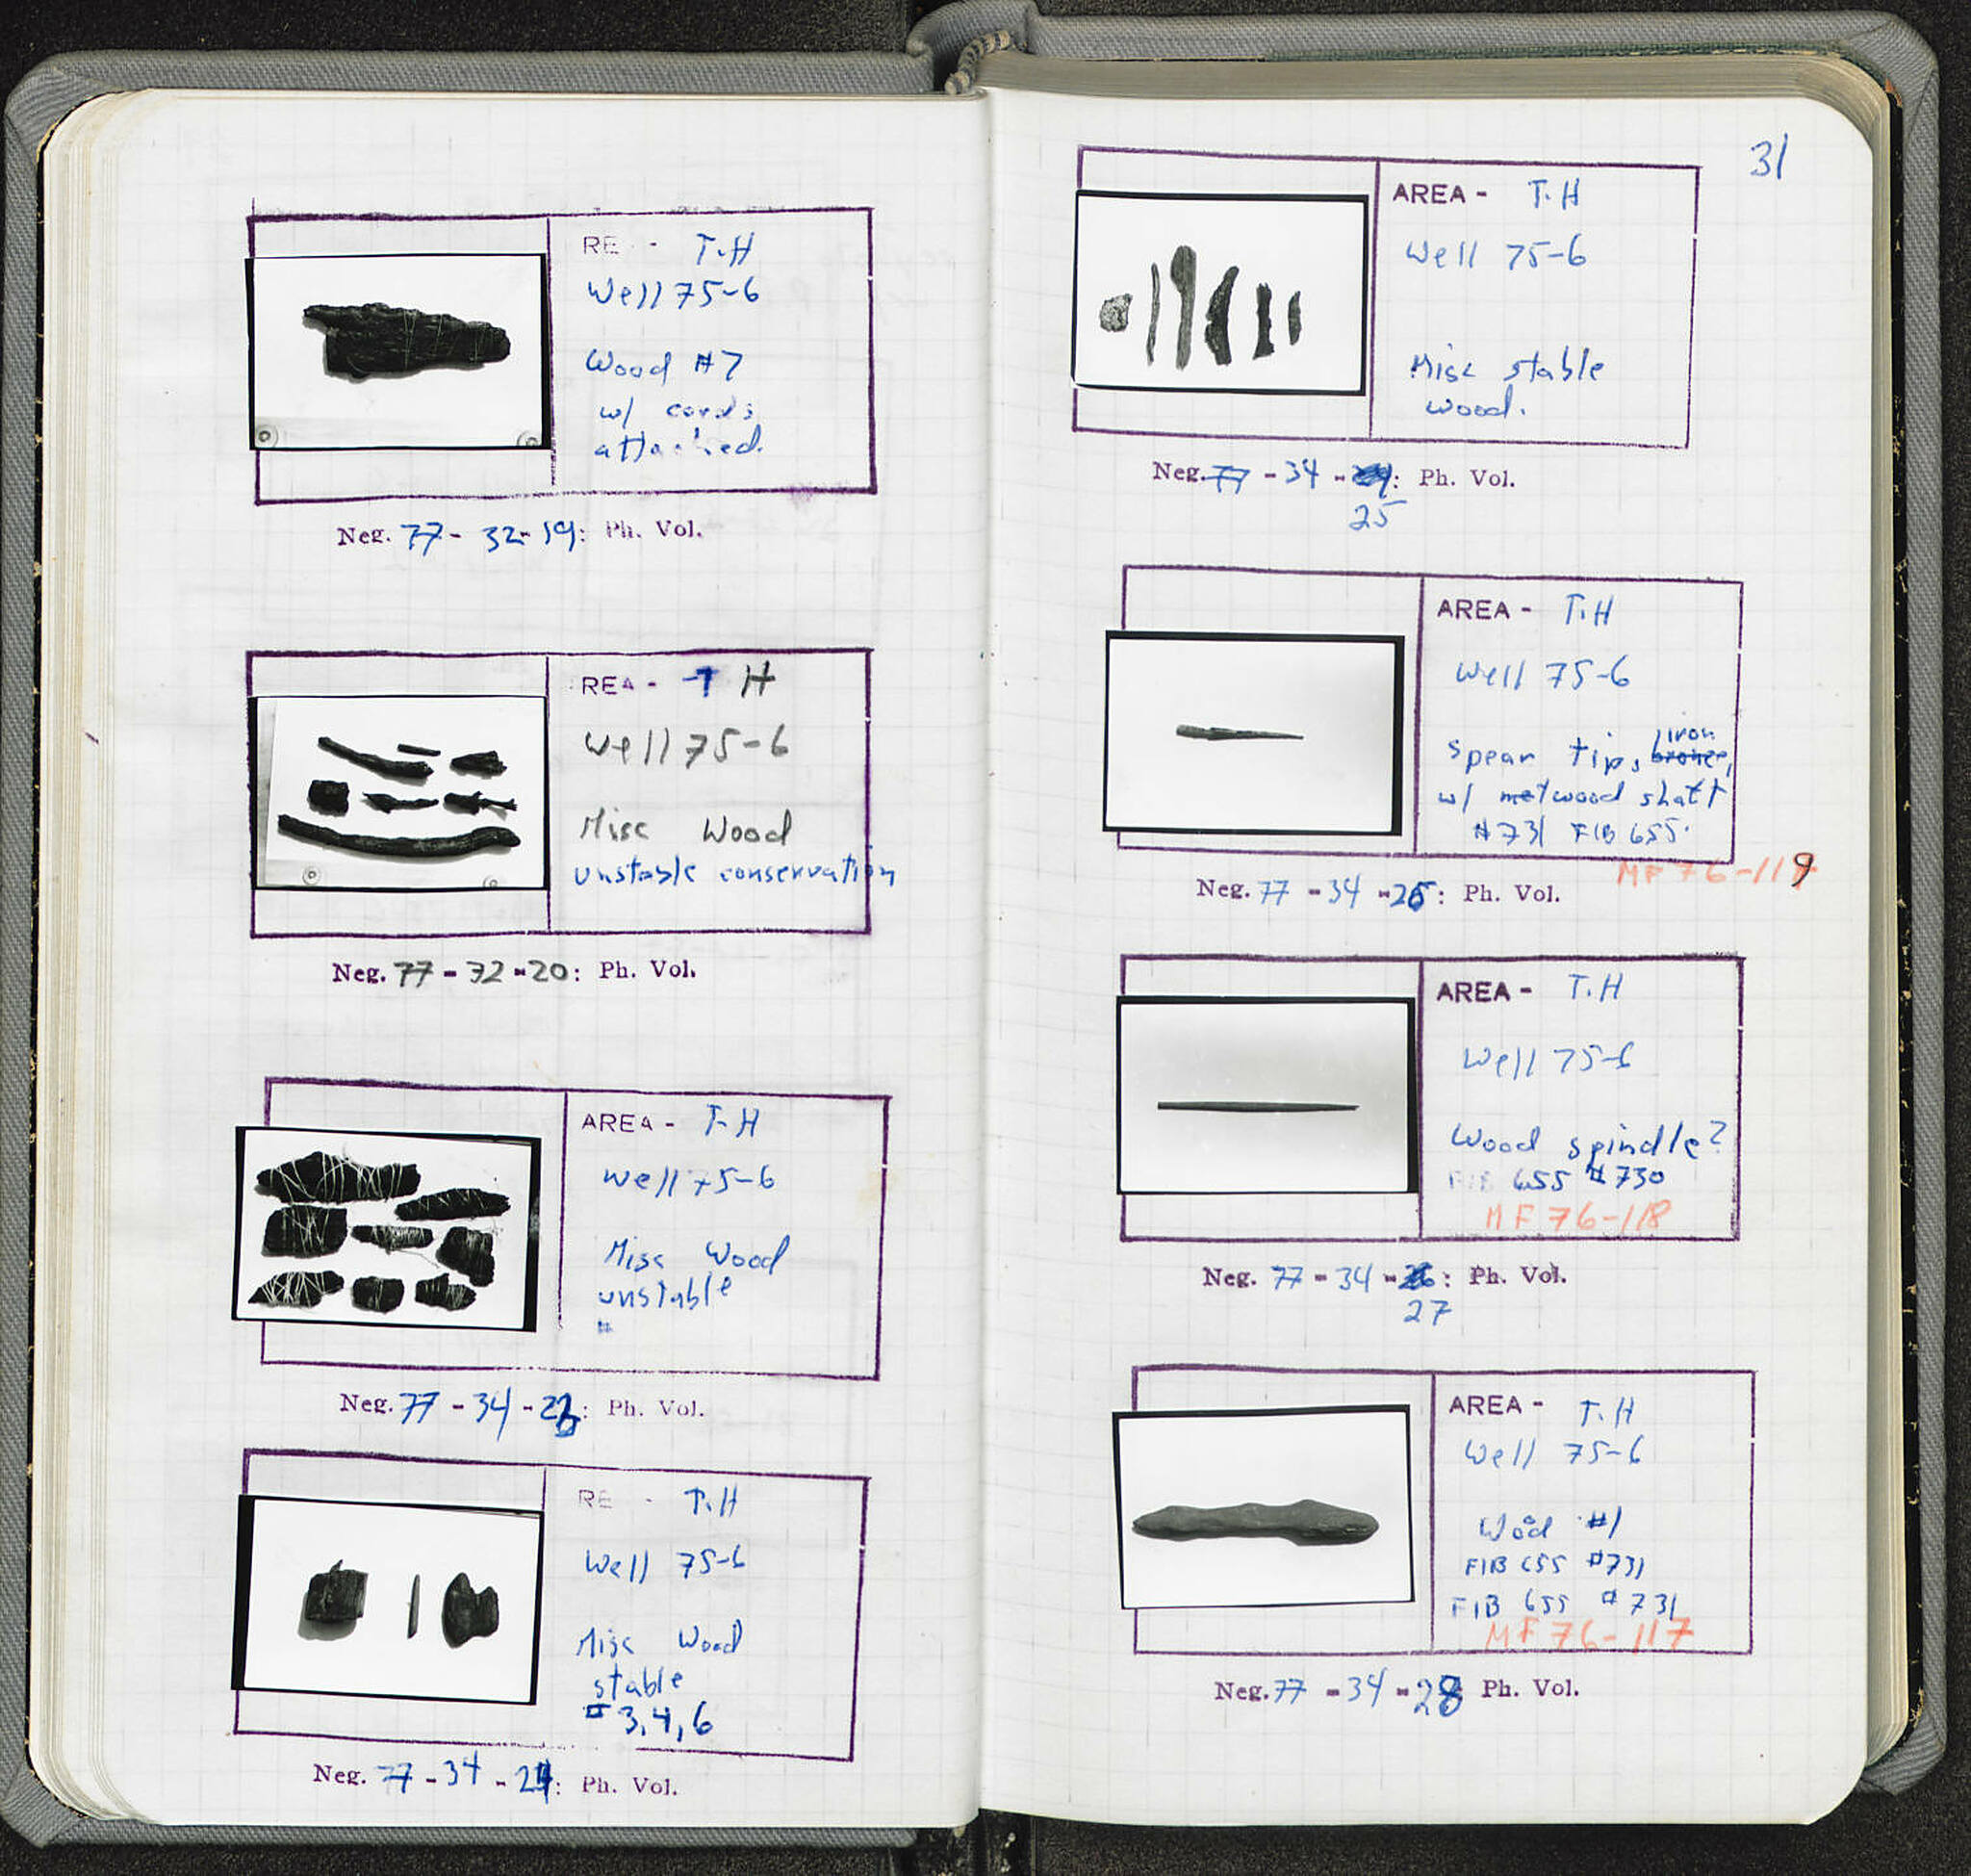 RE - T.H
Well 75-6
Wood #7
w/ cords
attached.
Neg. 77 - 32 - 19: Ph. Vol.
REA - T H
Well 75-6
Misc Wood
unstable conservation
Neg. 77 - 32 - 20: Ph. Vol.
AREA - T-H
Well 75-6
Misc Wood
unstable
#
Neg. 77 - 34 - 23: Ph. Vol.
RE - T.H
Well 75-6
Misc Wood
stable
# 3, 4, 6
Neg. 77 - 34 - 24: Ph. Vol.
31
AREA - T.H
Well 75-6
Misc stable
wood.
Neg. 77 - 34 - : Ph. Vol.
25
AREA - T.H
Well 75-6
iron
Spear tip, bronze,
w/ met wood shaft
#731 FIB 655.
MF 76-119
Neg. 77 - 34 - 26: Ph. Vol.
AREA - T.H
Well 75-6
Wood spindle?
FIB 655 #730
MF 76-118
Neg. 77 - 34 - 26: Ph. Vol.
27
AREA - T.H
Well 75-6
Wood #1
FIB 655 #731
FIB 655 #731
MF 76-117
Neg. 77 - 34 - 28 Ph. Vol.